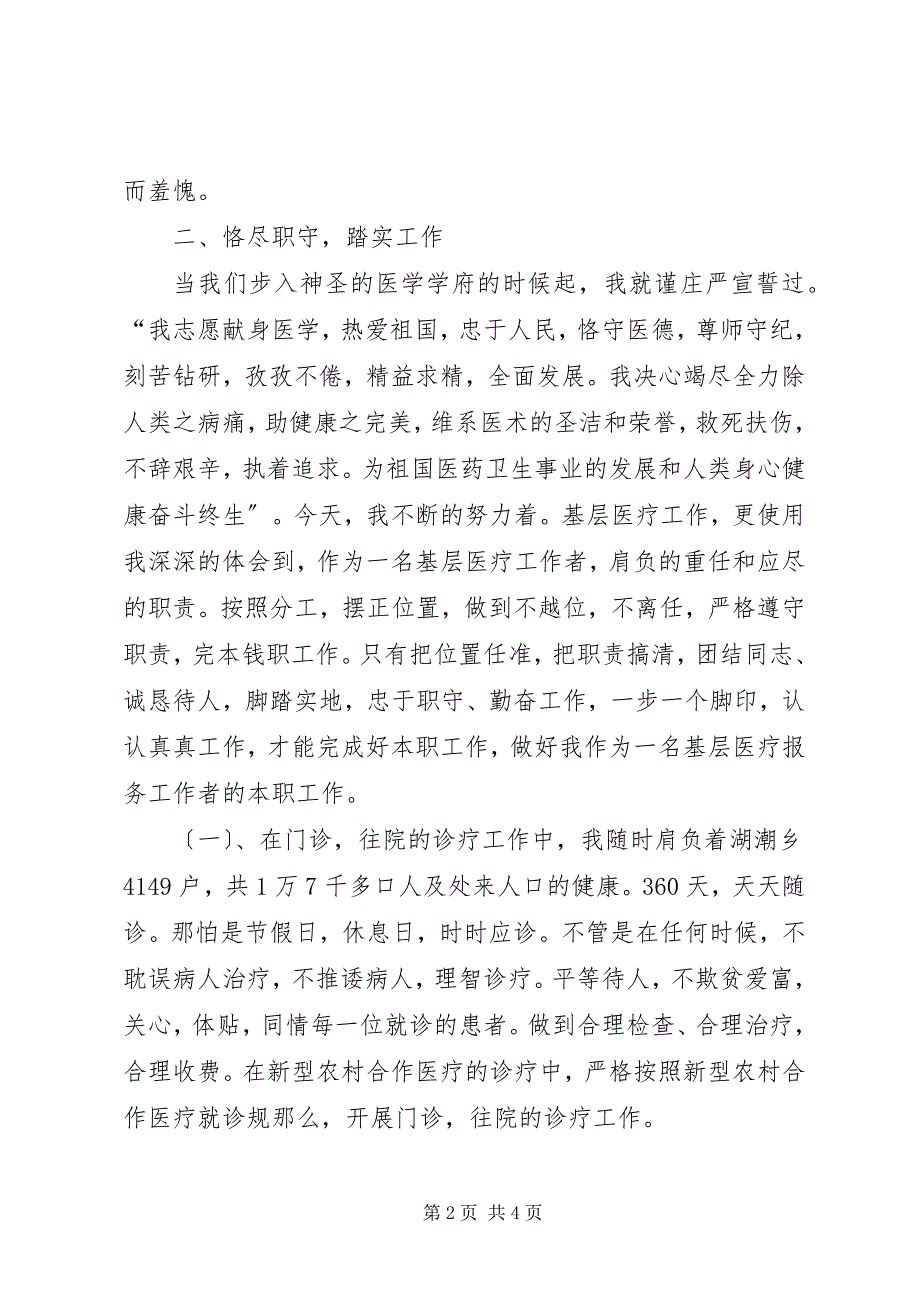 而羞愧。
二、恪尽职守，踏实工作
当我们步入神圣的医学学府的时候起，我就谨庄严宣誓过。
“我志愿献身医学，热爱祖国，忠于人民，恪守医德，尊师守纪，
刻苦钻研，孜孜不倦，精益求精，全面发展。我决心竭尽全力除
人类之病痛，助健康之完美，维系医术的圣洁和荣誉，救死扶伤，
不辞艰辛，执着追求。为祖国医药卫生事业的发展和人类身心健
康奋斗终生〞。今天，我不断的努力着。基层医疗工作，更使用
我深深的体会到，作为一名基层医疗工作者，肩负的重任和应尽
的职责。按照分工，摆正位置，做到不越位，不离任，严格遵守
职责，完本钱职工作。只有把位置任准，把职责搞清，团结同志、
诚恳待人，脚踏实地，忠于职守、勤奋工作，一步一个脚印，认
认真真工作，才能完成好本职工作，做好我作为一名基层医疗报
务工作者的本职工作。
〔一〕、在门诊，往院的诊疗工作中，我随时肩负着湖潮乡
4149 户，共 1 万 7 千多口人及处来人口的健康。360 天，天天随
诊。那怕是节假日，休息日，时时应诊。不管是在任何时候，不
耽误病人治疗，不推诿病人，理智诊疗。平等待人，不欺贫爱富，
关心，体贴，同情每一位就诊的患者。做到合理检查、合理治疗，
合理收费。在新型农村合作医疗的诊疗中，严格按照新型农村合
作医疗就诊规那么，开展门诊，往院的诊疗工作。
第 2 页 共 4 页